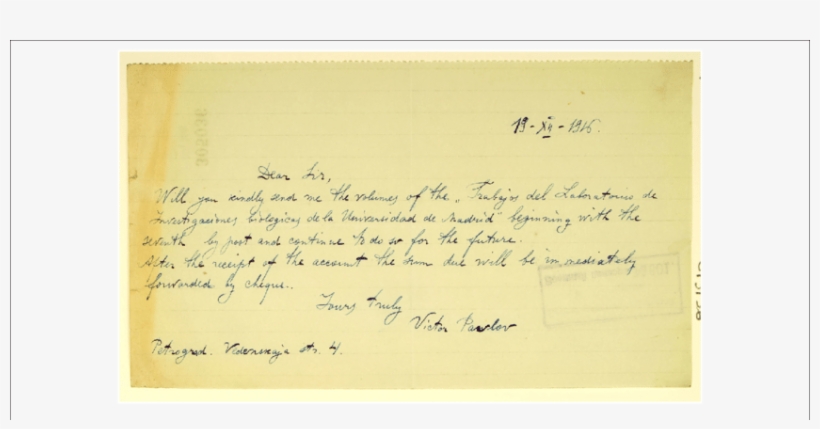 19-XII-1915.
Dear Sir,
Will you kindly send me the volumes of the „Trabajos del Laboratorio de
Investigaciones biologicas de la Universidad de Madrid" beginning with the
seventh by post and continue to do so for the future.
After the receipt of the account the sum due will be immediately
forwarded by cheque..
Yours truly
Victor Pavlov
Petrograd. str. 4.